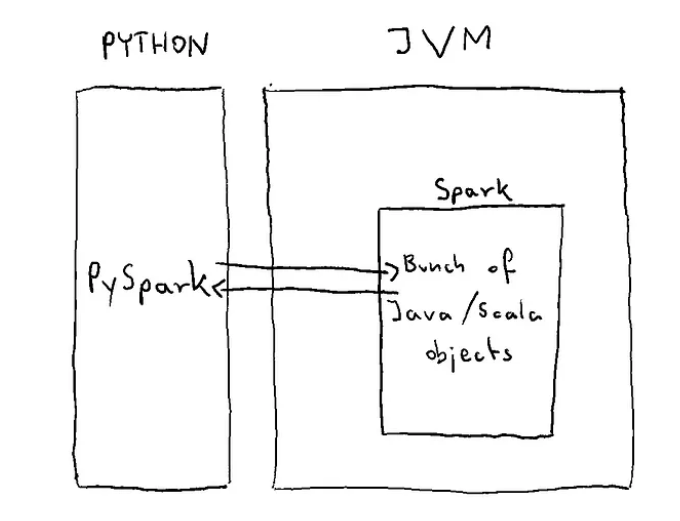 PYTHON
JVM
Spark
PySpark
Bunch of
Java/Scala
objects